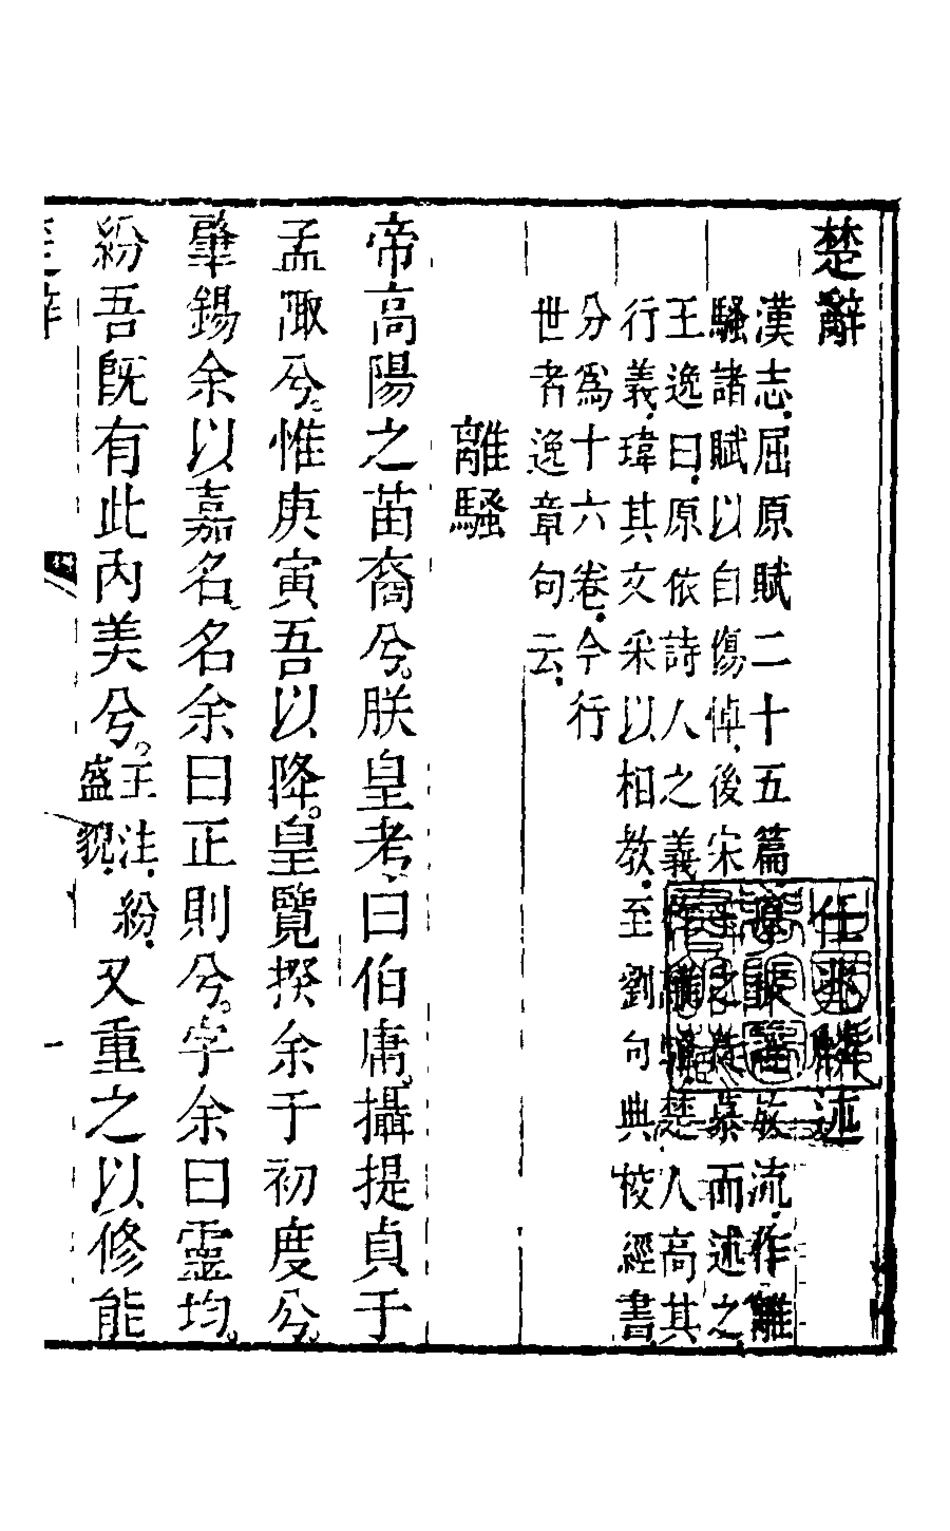 楚辭　任兆麟述
漢志、屈原賦二十五篇原被讒放流、作離
騷諸賦以自傷悼、後宋玉之徒慕而述之、
王逸曰、原依詩人之義作離騷楚人高其
行義、瑋其文采以相教、至劉句典校經書、
分爲十六卷、今行
世者逸章句云、
離騷
帝高陽之苗裔兮。朕皇考曰伯庸。攝提貞于
孟陬兮。惟庚寅吾以降。皇覽揆余于初度兮。
肇錫余以嘉名。名余曰正則兮。字余曰靈均。
紛吾旣有此內美兮。王注、紛、盛貌、又重之以修能
一